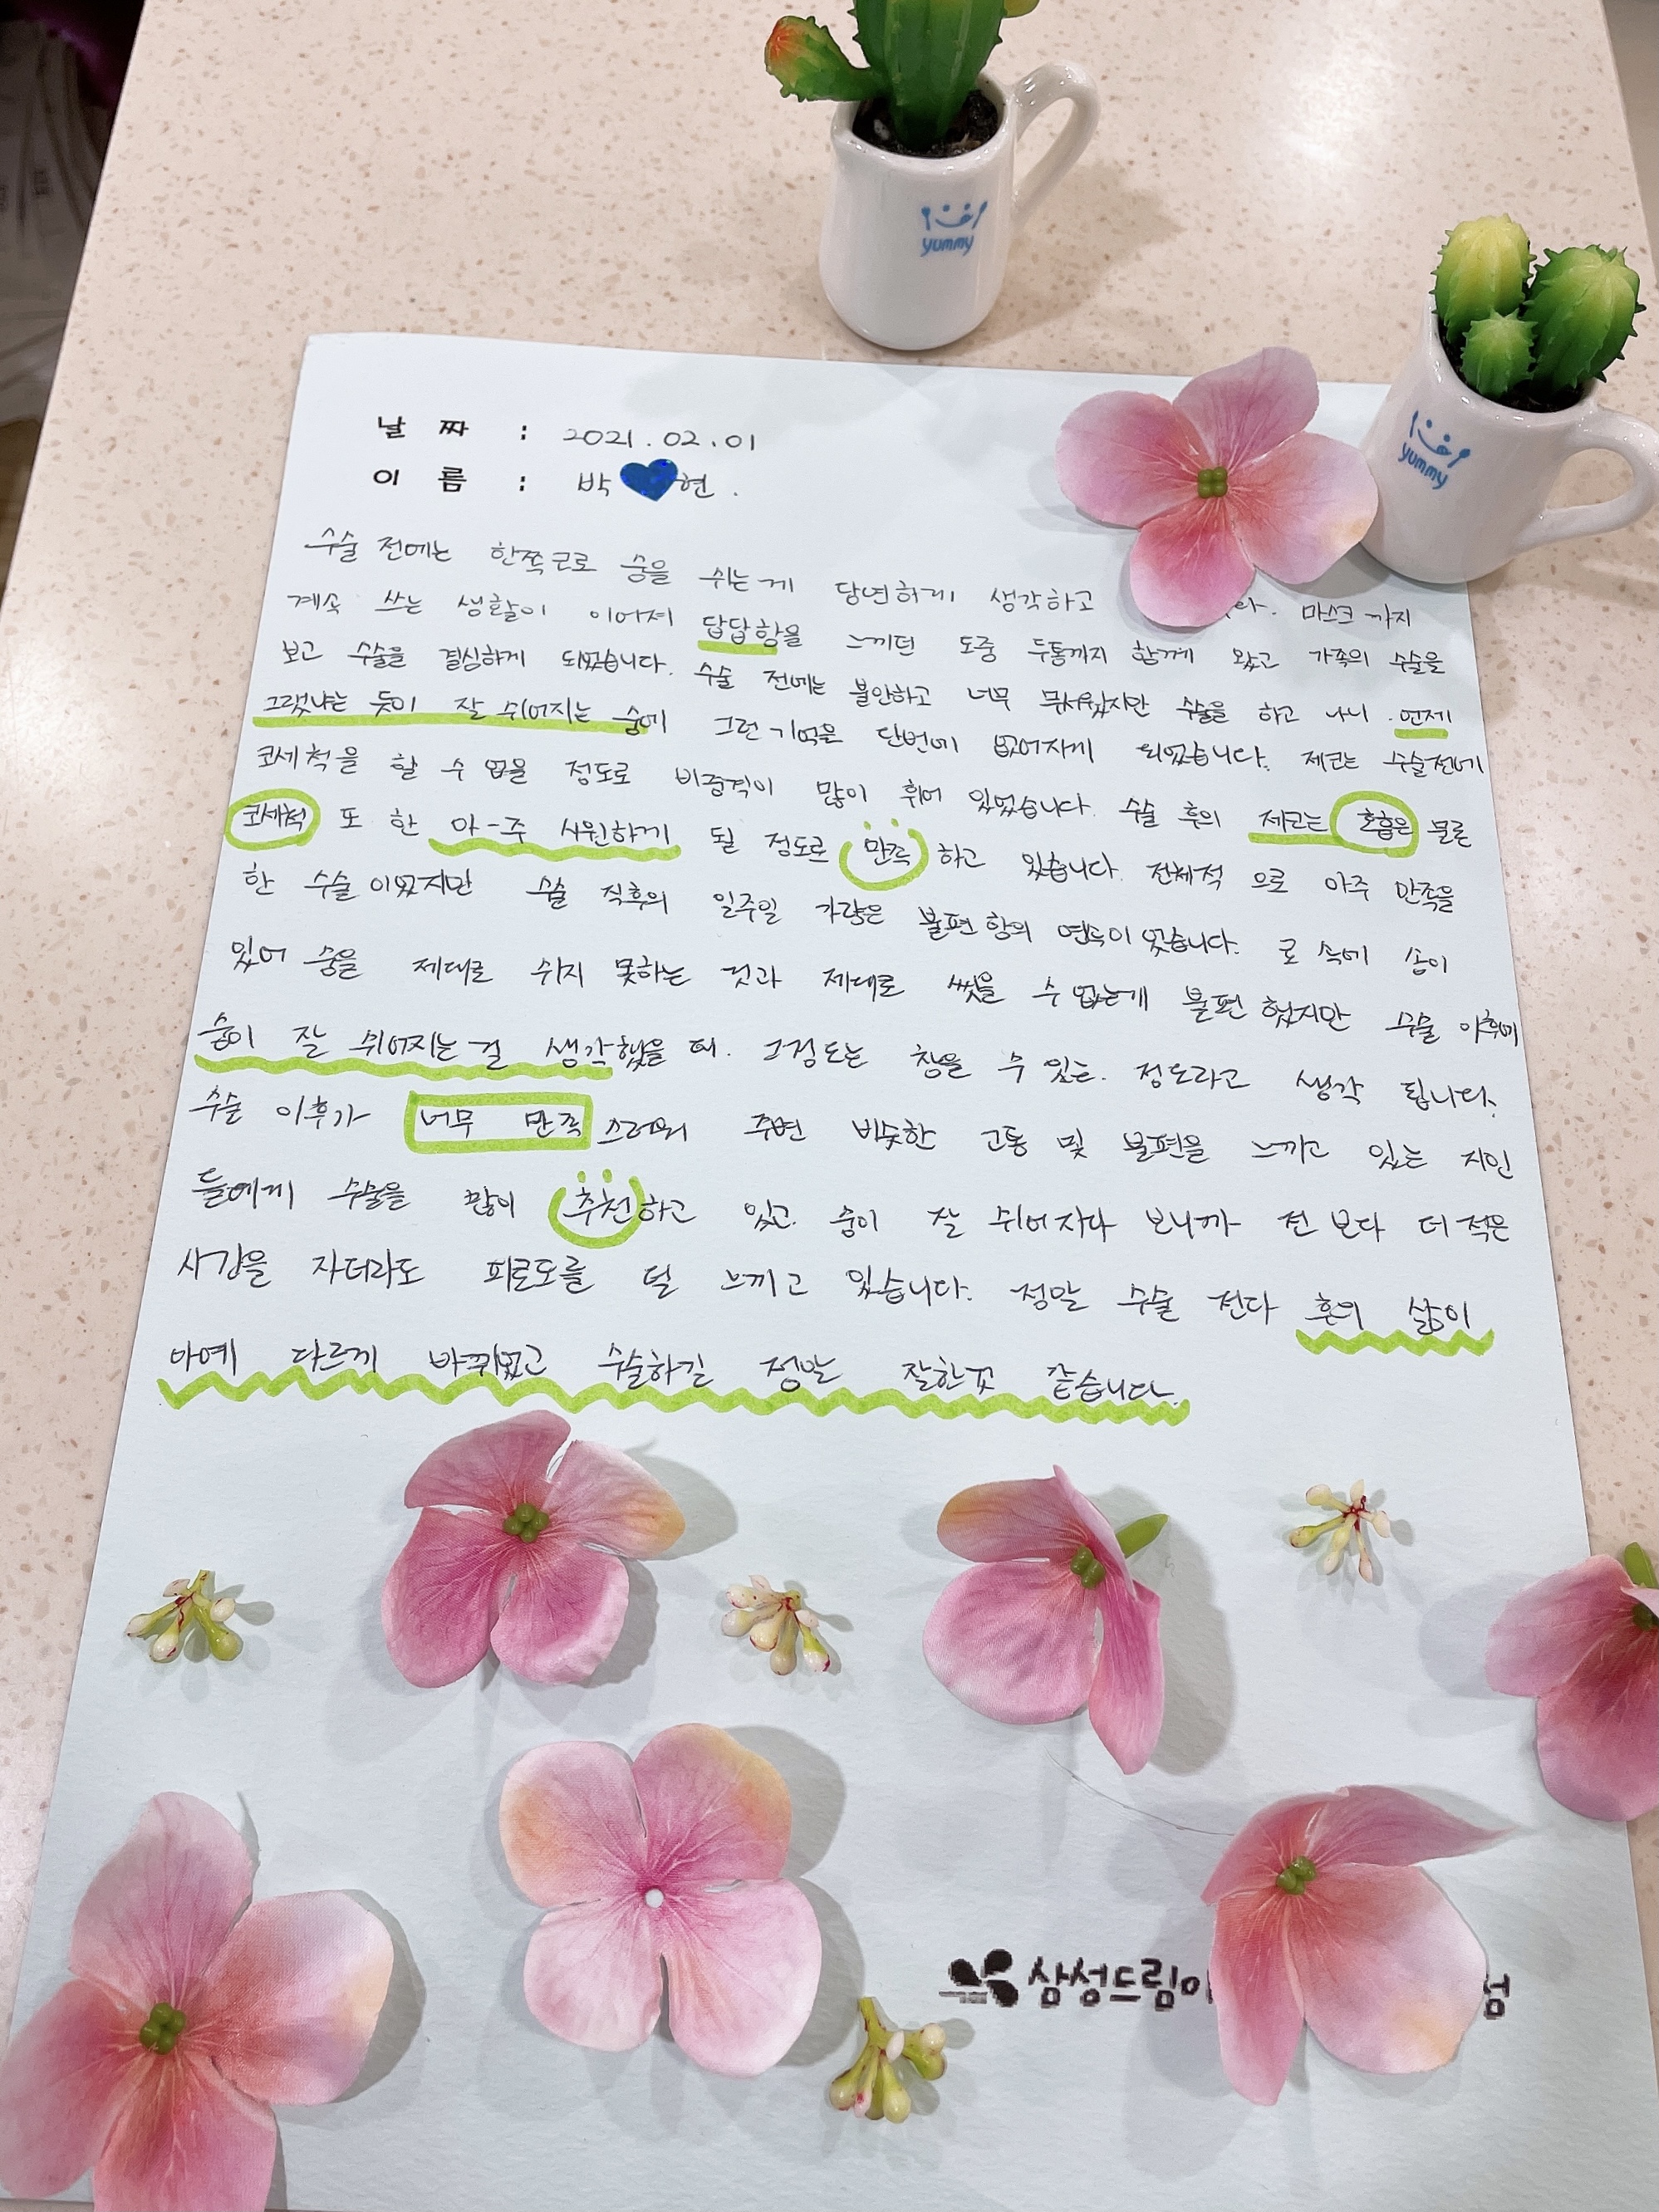 yummy
yummy
날 짜 : 2021.02.01
이 름 : 박 현.
수술 전에는 한쪽코로 숨을 쉬는게 당연하게 생각하고 다. 마스크까지
계속 쓰는 생활이 이어져 답답함을 느끼던 도중 두통까지 함께 왔고 가족의 수술을
보고 수술을 결심하게 되었습니다. 수술 전에는 불안하고 너무 무서웠지만 수술을 하고 나니 언제
그랬냐는 듯이 잘 쉬어지는 숨에 그런 기억을 단번에 없어지게 되었습니다. 제코는 수술전에
코세척을 할 수 없을 정도로 비중격이 많이 휘어 있었습니다. 수술 후의 제코는 호흡은 물론
코세척 또 한 아-주 시원하게 될 정도로 만족 하고 있습니다. 전체적 으로 아주 만족을
한 수술이었지만 수술 직후의 일주일 가량은 불편함의 연속이었습니다. 코 속에 솜이
있어 숨을 제대로 쉬지 못하는 것과 제대로 씻을 수 없는게 불편했지만 수술 이후에
숨이 잘 쉬어지는 걸 생각했을 때. 그정도는 참을 수 있는. 정도라고 생각 됩니다.
수술 이후가 너무 만족 스러워 주변 비슷한 고통 및 불편을 느끼고 있는 지인
들에게 수술을 많이 추천하고 있고. 숨이 잘 쉬어지다 보니까 전 보다 더 적은
시간을 자더라도 피로도를 덜 느끼고 있습니다. 정말 수술 전다 후의 삶이
아예 다르게 바뀌었고 수술하길 정말 잘한것 같습니다.
삼성드림이